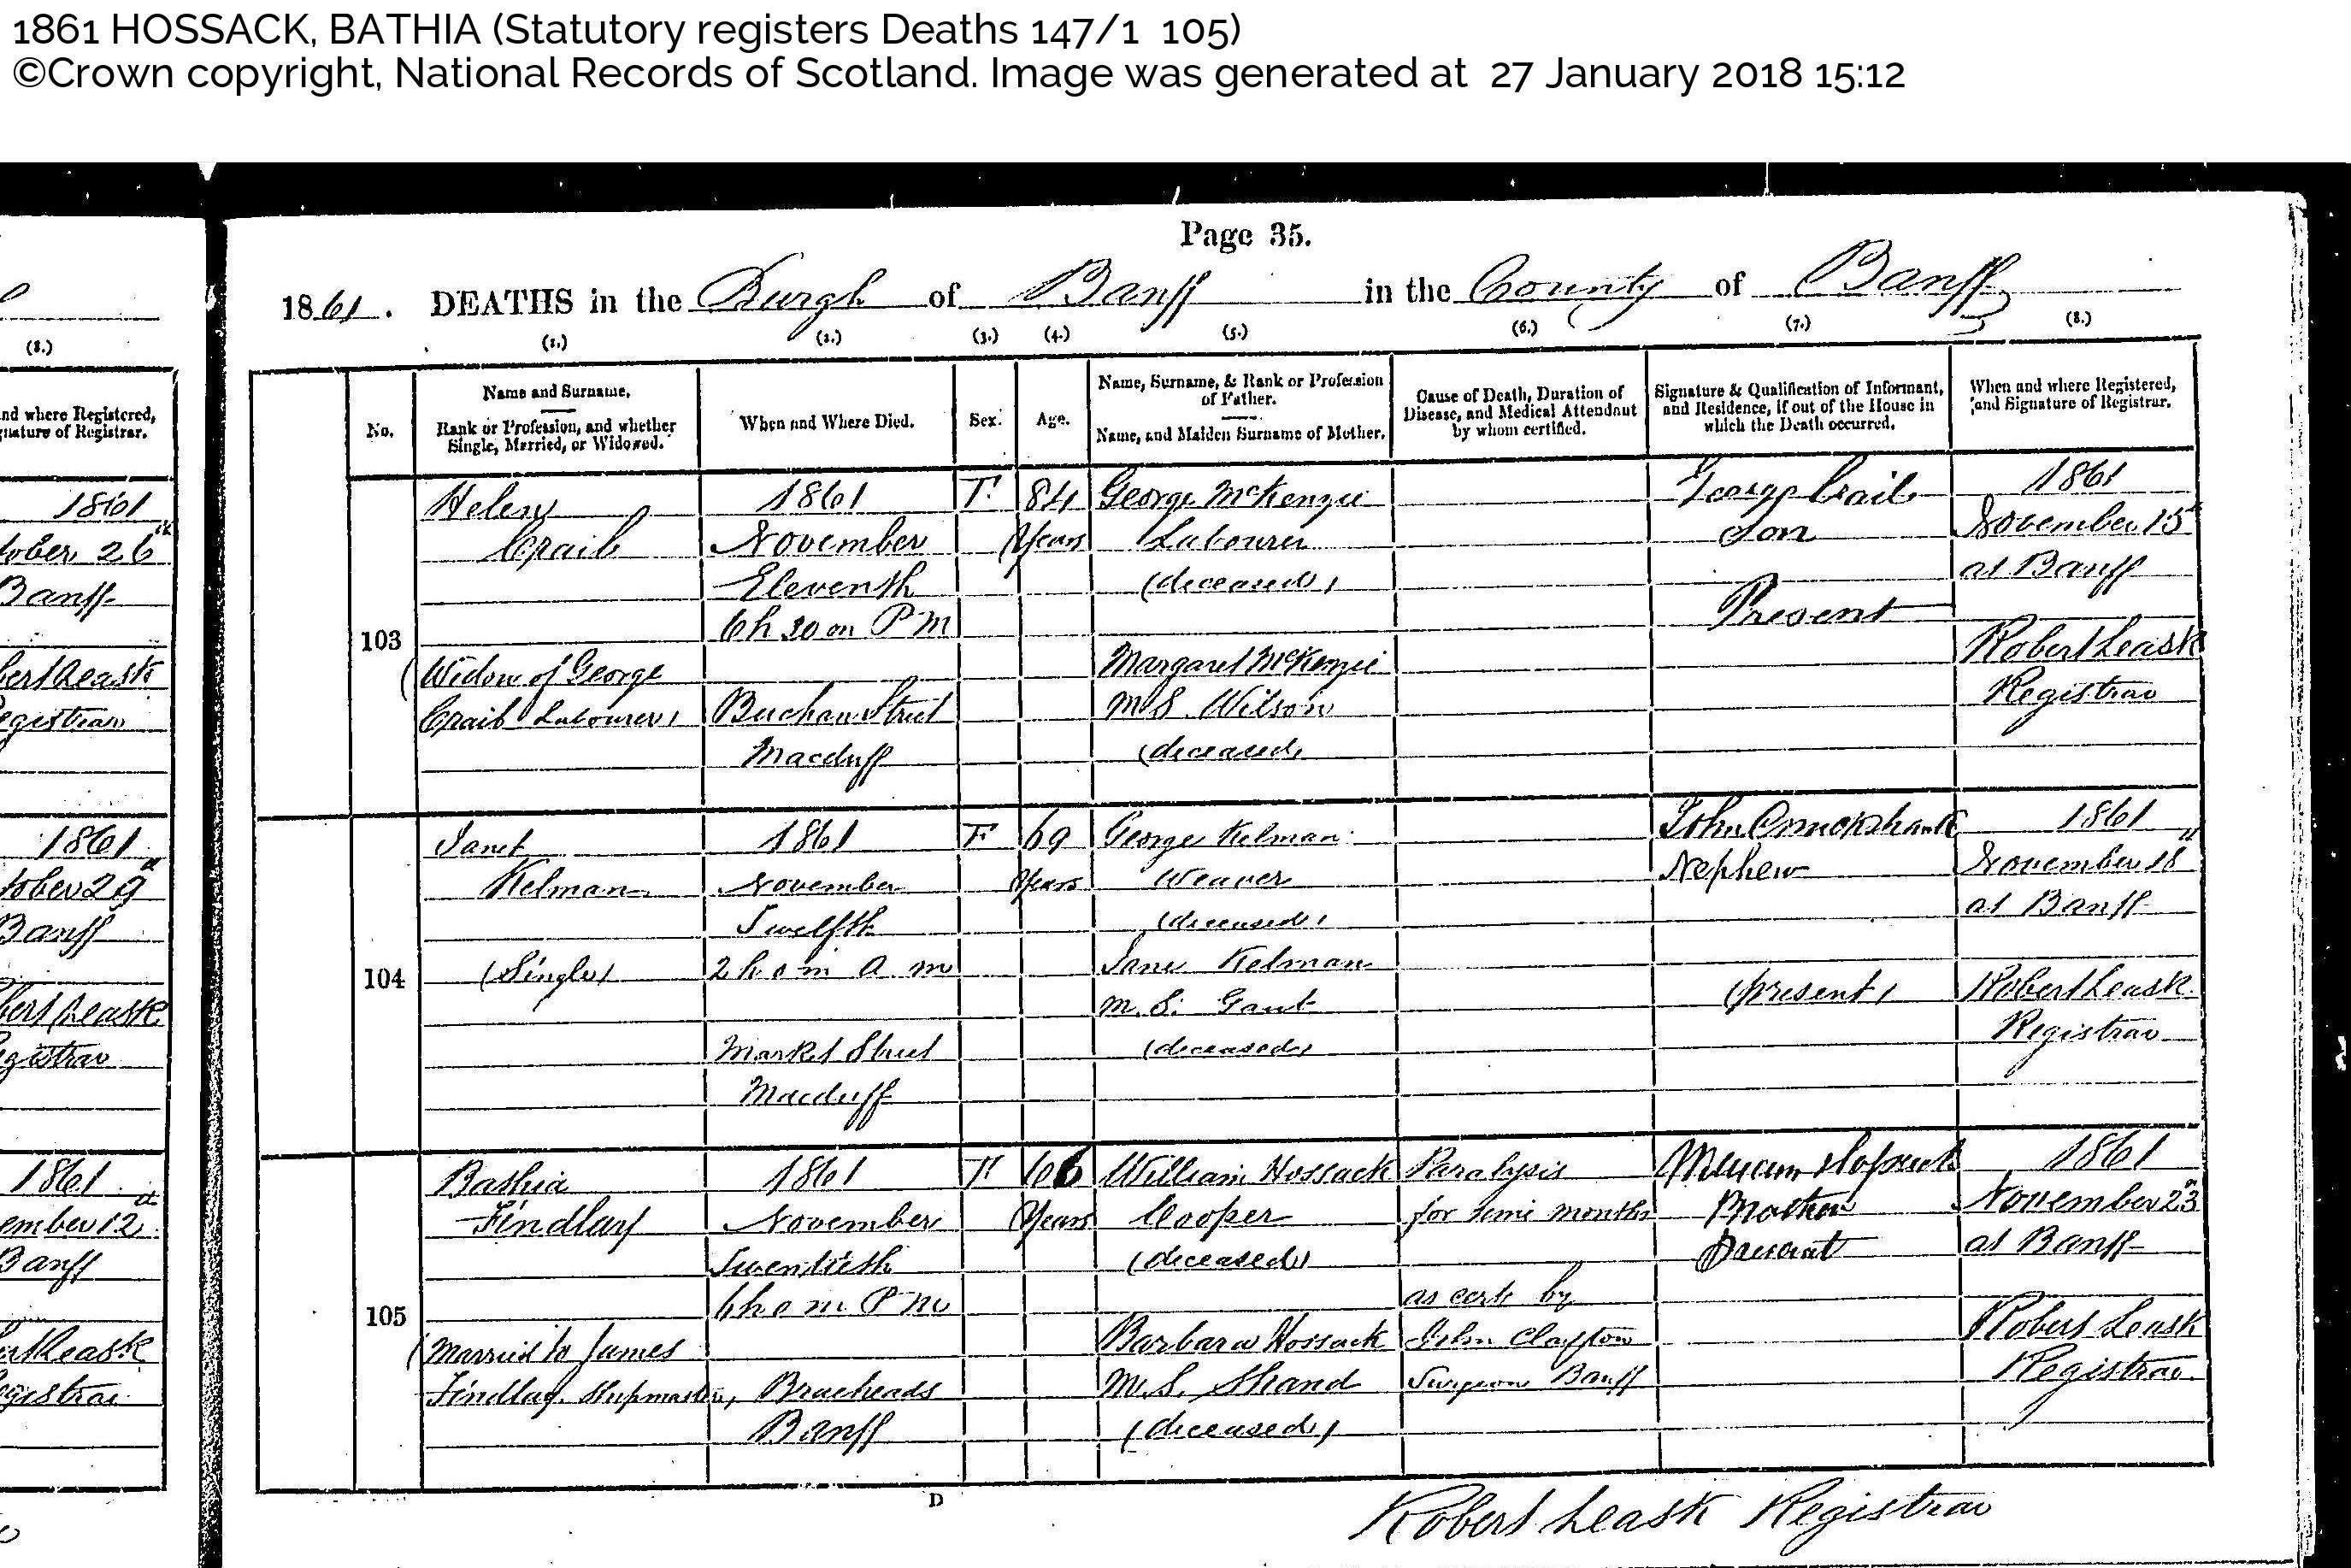 1861 HOSSACK, BATHIA (Statutory registers Deaths 147/1 105)
©Crown copyright, National Records of Scotland. Image was generated at 27 January 2018 15:12
Page 35.
1861. DEATHS in the Burgh of Banff in the County of Banff
(1.) (2.) (3.) (4.) (5.) (6.) (7.) (8.)
(8.)
nd where Registered,
gnature of Registrar.
1861
tober 26
Banff
bert Leask
egistrar
1861
tober 29
Banff
bert Leask
egistrar
1861
ember 12
Banff
ert Leask
egistrar
No.
Name and Surname.
Rank or Profession, and whether
Single, Married, or Widowed.
When and Where Died.
Sex.
Age.
Name, Surname, & Rank or Profession
of Father.
Name, and Maiden Surname of Mother.
Cause of Death, Duration of
Disease, and Medical Attendant
by whom certified.
Signature & Qualification of Informant,
and Residence, if out of the House in
which the Death occurred.
When and where Registered,
and Signature of Registrar.
103
Helen
Craib
(Widow of George
Craib Labourer)
1861
November
Eleventh
6h 30m P M
Buchan Street
Macduff
F.
84
Years
George McKenzie
Labourer
(deceased)
Margaret McKenzie
M.S. Wilson
(deceased)
George Craib
Son
Present
1861
November 15
at Banff
Robert Leask
Registrar
104
Janet
Kelman
(Single)
1861
November
Twelfth
2 h 0 m A m
Market Street
Macduff
F
69
Years
George Kelman
Weaver
(deceased)
Jane Kelman
m.S. Gaut
(deceased)
John Cruickshank
Nephew
(present)
1861
November 18
at Banff
Robert Leask
Registrar
105
Bathia
Findlay
(Married to James
Findlay, Shipmaster)
1861
November
Twentieth
6 h 0 m P M
Braeheads
Banff
F
Years
William Hossack
Cooper
(deceased)
Barbara Hossack
M.S. Shand
(deceased)
Paralysis
for some months
as cert by
John Clayton
Surgeon Banff
Hossack
Brother
Present
1861
November 23
at Banff
Robert Leask
Registrar
D
Robert Leask Registrar